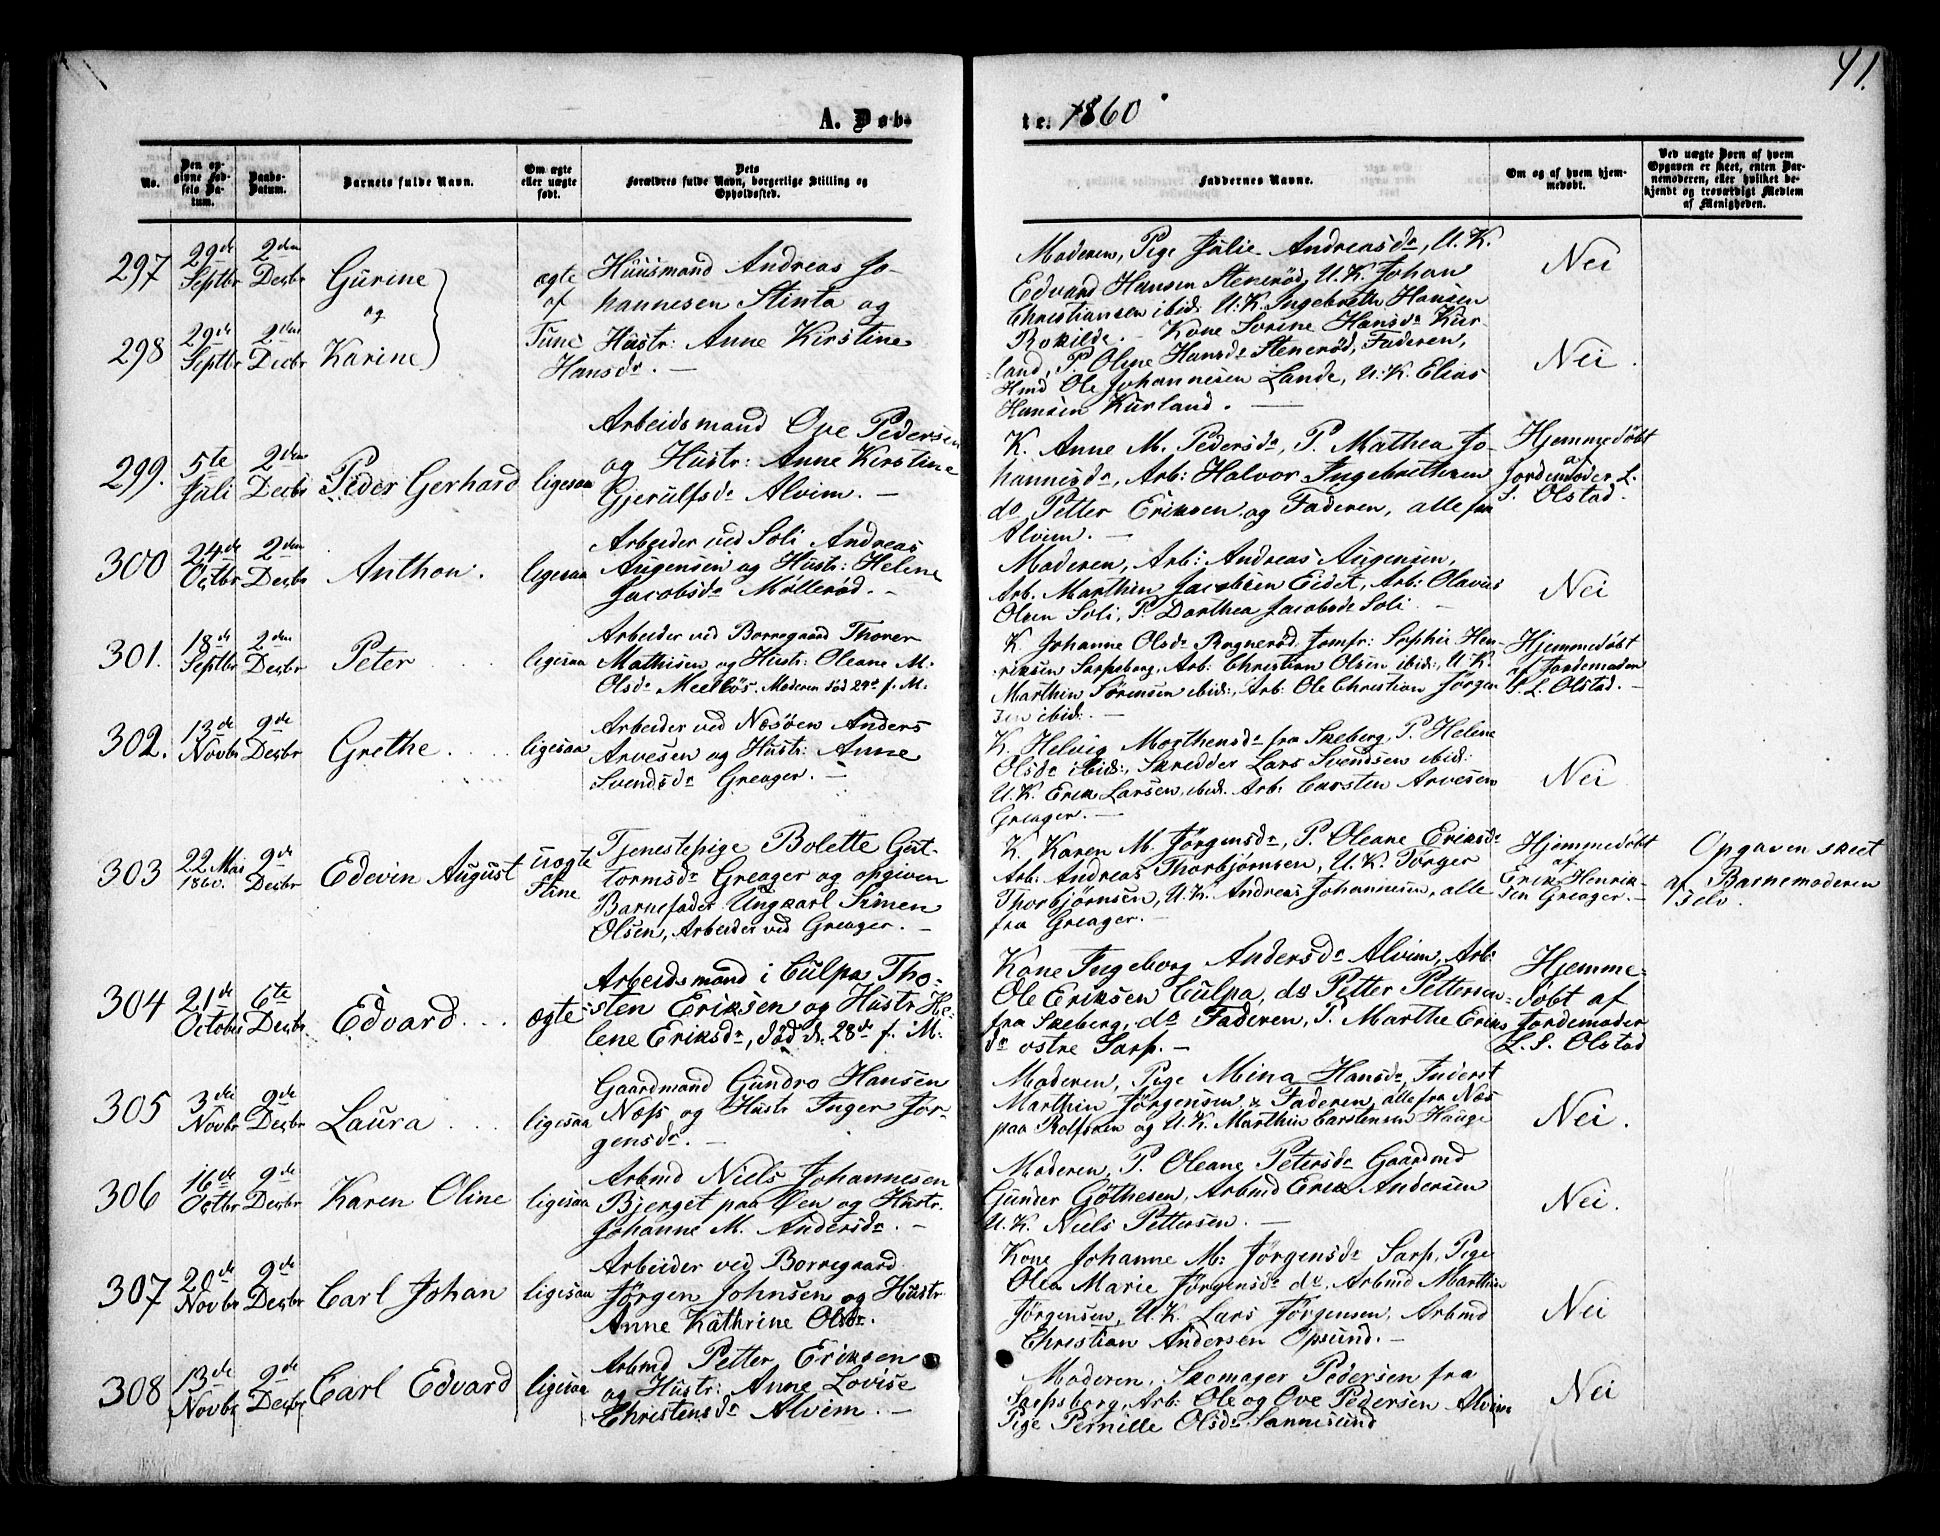 41.
A. Døb-
te. 1860
No.
Den op-
givne Fød-
sels Da-
tum.
Daabs-
Datum.
Barnets fulde Navn.
Om ægte
eller uægte
født.
Dets
Forældres fulde Navn, borgerlige Stilling og
Opholdssted.
Faddernes Navne.
Om og af hvem hjem-
medøbt.
Ved uægte Børn af hvem
Opgaven er skeet, enten Bar-
nemoderen, eller hvilket be-
kjendt og troværdigt Medlem
af Menigheden.
297
29de
Septbr
2den
Decbr
Gurine
og
ægte
af
Tune
Huusmand Andreas Jo-
hannesen Stinta og
Hustr: Anne Kirstine
Hansdr. —
298
29de
Septbr
2den
Decbr
Karine
Moderen, Pige Julie Andreasdr, U.K.
Edvard Hansen Stenerød, U.K. Johan
Christiansen ibid: U.K. Ingebreth Hansen
Rokilde. — Kone Sorine Hansdr Kur-
land, P. Oline Hansdr Stenerød, Faderen,
Hmd Ole Johannesen Lande, U.K. Elias
Hansen Kurland. —
Nei
Nei.
299.
5te
Juli
2den
Decbr
Peder Gerhard
ligesaa
Arbeidsmand Ove Pedersen
og Hustr: Anne Kirstine
Gjerulfsdr Alvim. —
K. Anne M. Pedersdr, P. Mathea Jo-
hannesdr, Arb: Halvor Ingebrethsen
do Petter Eriksen og Faderen, alle fra
Alvim. —
Hjemmedøbt
af
Jordemoder L.
S. Olstad.
300
24de
Octbr
2den
Decbr
Anthon.
ligesaa
Arbeider ved Soli Andreas
Augensen og Hustr: Helene
Jacobsdr Møllerød. —
Moderen, Arb: Andreas Augensen,
Arb. Marthin Jacobsen Eidet, Arb: Olavus
Olsen Soli, P. Dorthea Jacobsdr Soli. —
Nei
301.
18de
Septbr
2den
Decbr
Peter
ligesaa
Arbeider ved Borregaard Thorer
Mathisen og Hustr: Oleane M.
Olsdr Meelløs. Moderen død 29de f. M.
K. Johanne Olsdr Rognerød, Jomfr: Sophie Hen-
riksen Sarpsborg, Arb: Christian Olsen ibid:, U.K.
Marthin Sørensen ibid:, Arb: Ole Christian Jørgen-
sen ibid:. —
Hjemmedøbt
af Jordemoder
S. L. Olstad. —
302.
13de
Novbr
9de
Decbr
Grethe
ligesaa
Arbeider ved Næsøen Anders
Arvesen og Hustr: Anne
Svendsdr Greager. —
K. Helvig Morthensdr fra Skeberg, P. Helene
Olsdr ibid:, Skredder Lars Svendsen ibid:
U.K. Erik Larsen, ibid. Arb: Carsten Arvesen
Greager. —
Nei
303
22 Mai
1860.
9de
Decbr
Edevin August
uægte
Tune
Tjenestepige Bolette Gut-
tormsdr Greager og opgiven
Barnefader Ungkarl Simen
Olsen, Arbeider ved Greager. —
K. Karen M. Jørgensdr, P. Oleane Eriksdr
Arb: Andreas Thorbjørnsen, U.K. Torger
Thorbjørnsen, U.K. Andreas Johannesen, alle
fra Greager. —
Hjemmedøbt
af
Erik Henrik-
sen Greager. —
Opgaven skeet
af Barnemoderen
selv.
304
21de
October
6te
Decbr.
Edvard
ægte
Arbeidsmand i Culpa Tho-
sten Eriksen og Hustr. He-
lene Eriksdr, død d. 28de f. M.
Kone Ingeborg Andersdr Alvim, Arb:
Ole Eriksen Culpa, do Petter Pettersen
fra Skeberg, do Faderen, P. Marthe Eriks
dr østre Sarp. —
Hjemme-
døbt af
Jordemoder
L. S. Olstad
305
3die
Novbr
9de
Decbr
Laura
ligesaa
Gaardmand Gundro Hansen
Næss og Hustr Inger Jør-
gensdr. —
Moderen, Pige Mina Hansdr, Inderst
Marthin Jørgensen & Faderen, alle fra Næs
paa Rolfsøen og U.K. Marthin Carstensen Hauge
Nei.
306
16de
Octbr
9de
Decbr
Karen Oline
ligesaa
Arbmd Niels Johannesen
Bjerget paa Øen og Hustr.
Johanne M. Andersdr. —
Moderen, P. Oleane Petersdr Gaardmd
Gunder Gøthesen, Arbmd Erik Andersen
U.K. Niels Pettersen. —
Nei.
307
20de
Novbr
9de
Decbr
Carl Johan
ligesaa
Arbeider ved Borregaard
Jørgen Johnsen og Hustr
Anne Kathrine Olsdr.
Kone Johanne M: Jørgensdr Sarp, Pige
Olea Marie Jørgensdr do, Arbmd Marthin
Jørgensen, U.K. Lars Jørgensen, Arbmd
Christian Andersen Opsund. —
Nei
308
13de
Novbr
9de
Decbr
Carl Edvard
ligesaa
Arbmd Petter Eriksen
og Hustr: Anne Lovise
Christensdr Alvim. —
Moderen, Skomager Pedersen fra
Sarpsborg, Arb: Ole og Ove Pedersen Alvim
Pige Pernille Olsdr Sannesund
Nei